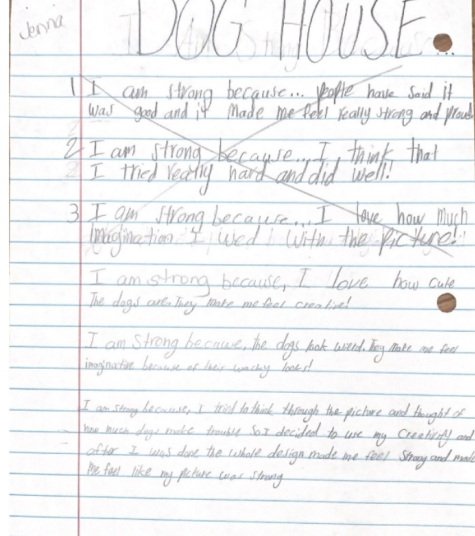 Jenna
DOG HOUSE...
1 I am strong because... people have said it
was good and it made me feel really strong and proud
2 I am strong because... I think that
I tried really hard and did well!
3 I am strong because... I love how much
imagination I used with the picture!
I am strong because, I love how cute
The dogs are. They make me feel creative!
I am strong because, the dogs look weird. They make me feel
imaginative because of their wacky looks!
I am strong because, I tried to think through the picture and thought of
how much dogs make trouble so I decided to use my creativity and
after I was done the whole design made me feel strong and made
me feel like my picture was strong